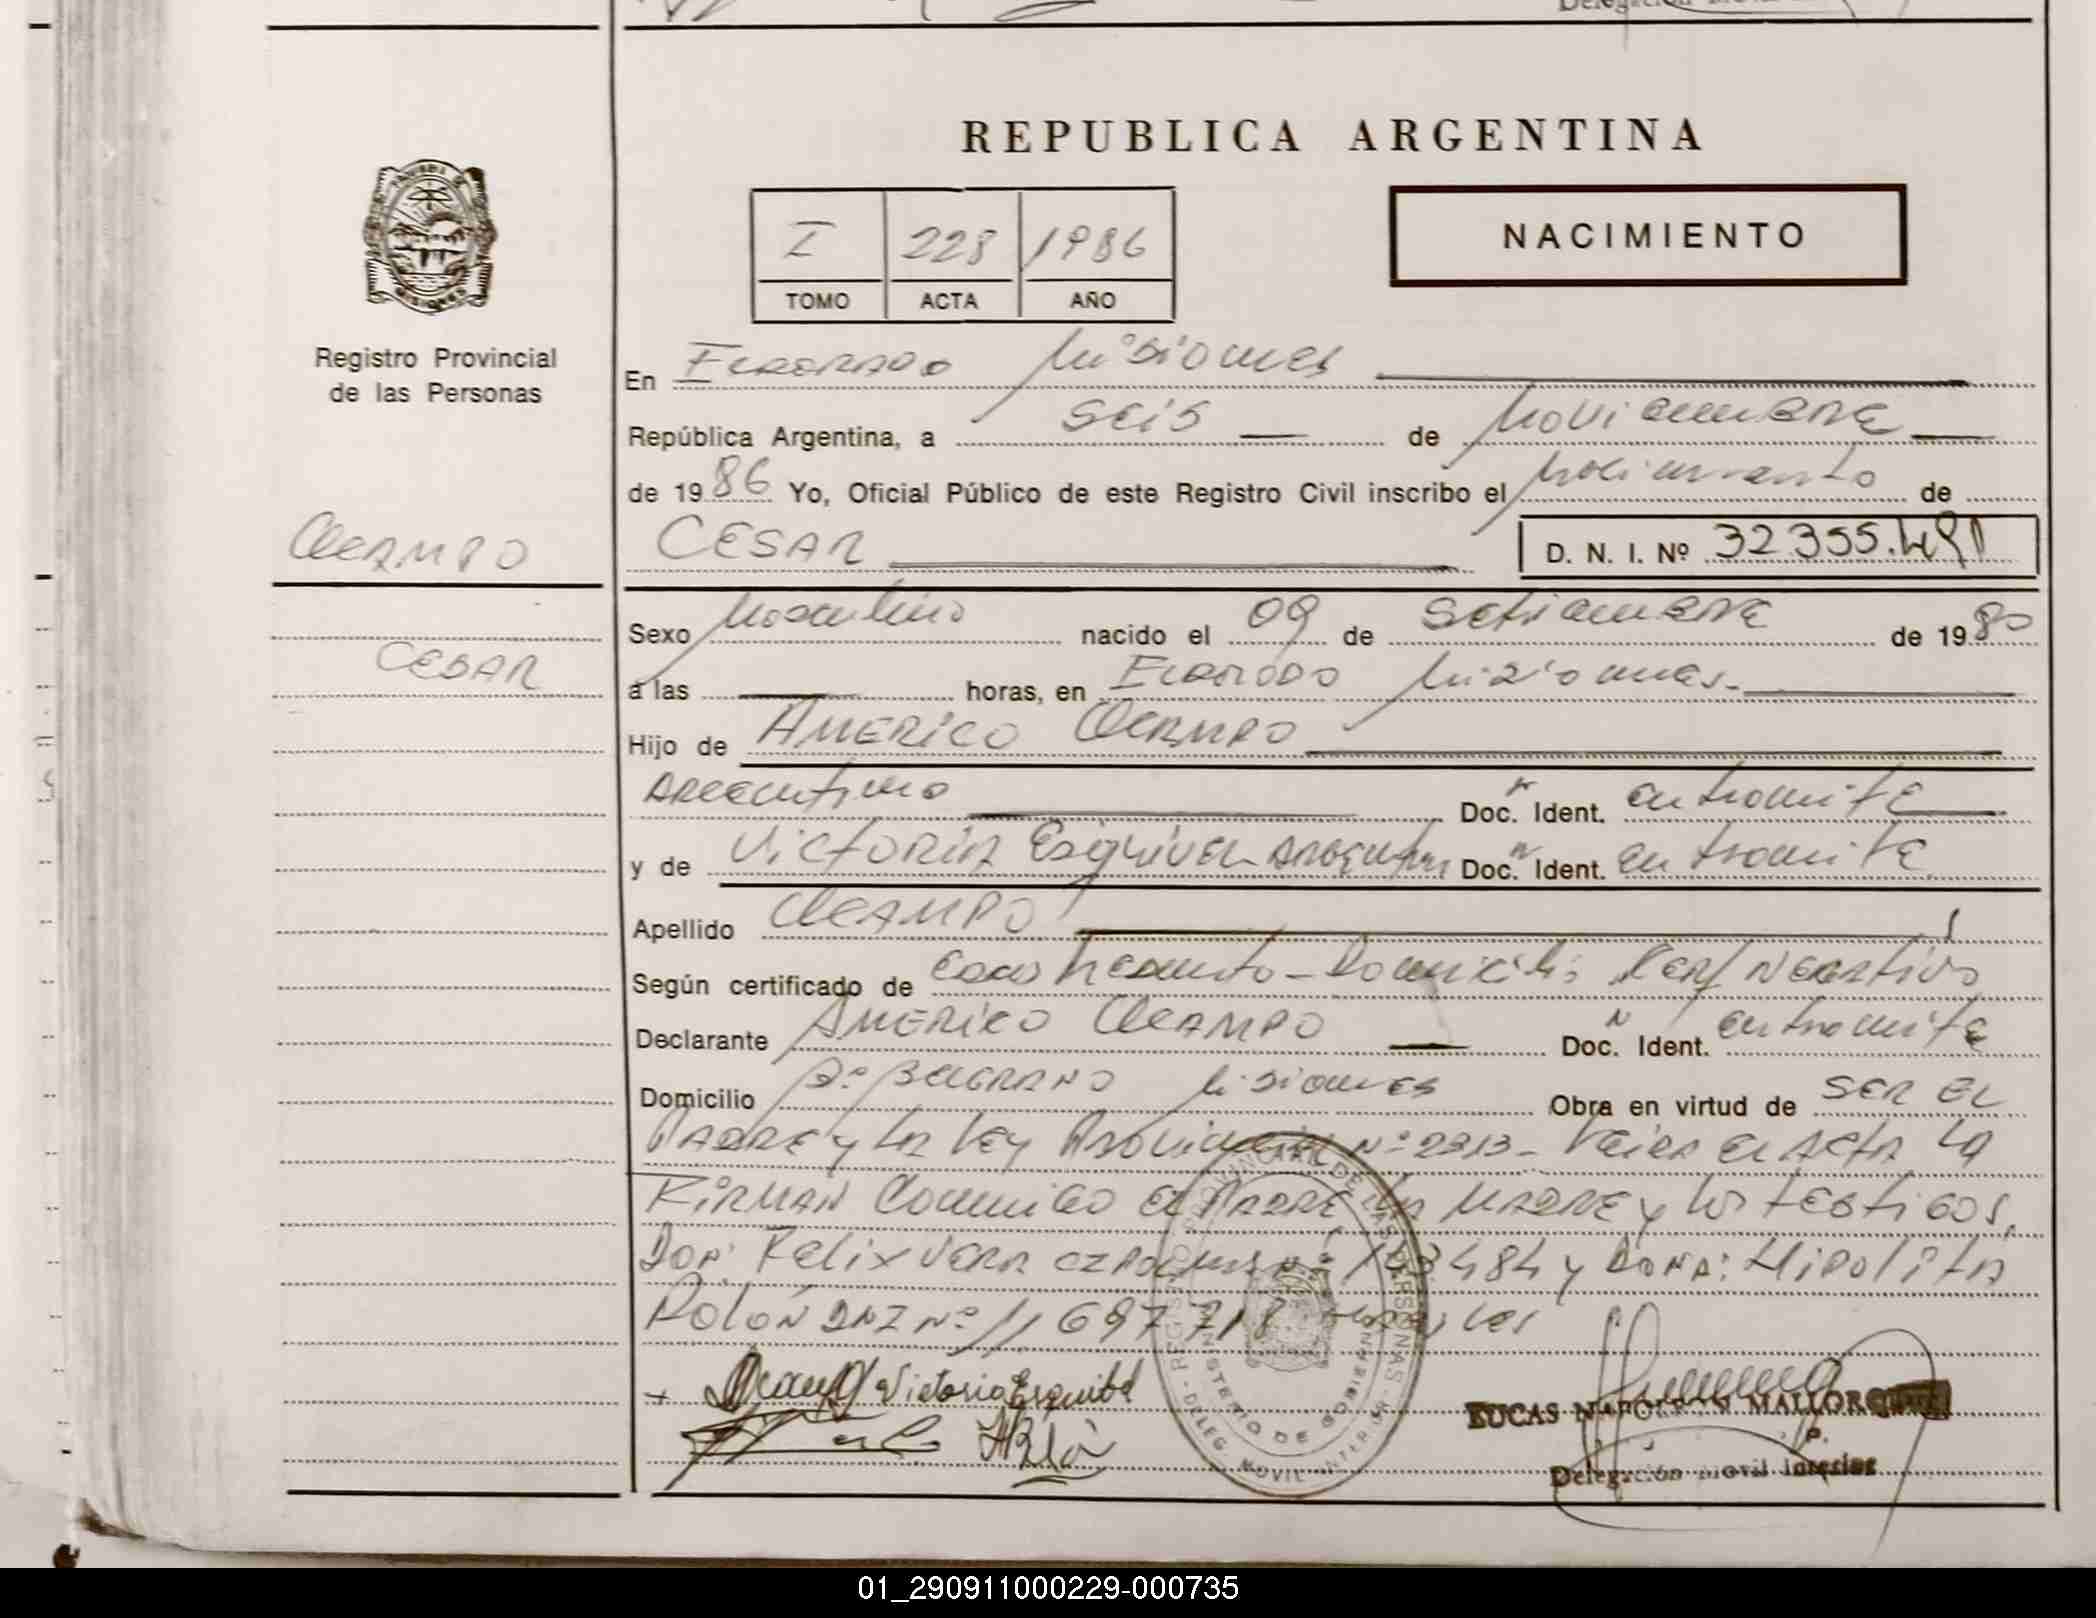 REPUBLICA ARGENTINA
I 228 1986
TOMO ACTA AÑO
NACIMIENTO
Registro Provincial
de las Personas
En Eldorado Misiones
República Argentina, a seis de Noviembre
de 1986 Yo, Oficial Público de este Registro Civil inscribo el Nacimiento de
OCAMPO
CESAR
D. N. I. Nº 32.355.491
Sexo Masculino nacido el 09 de Setiembre de 1980
CESAR
a las horas, en Eldorado Misiones.
Hijo de AMERICO OCAMPO
Argentino Doc. Ident. en tramite
y de VICTORIA Esquivel Argentina Doc. Ident. en tramite
Apellido OCAMPO
Según certificado de Domicilio Cert Negativo
Declarante AMERICO OCAMPO Doc. Ident. en tramite
Domicilio Bº BELGRANO Misiones Obra en virtud de SER EL
PADRE y La Ley Provincial Nº 2313 - Leida el Acta La
FIRMAN Conmigo el PADRE La MADRE y los testigos,
Don: Felix Vera y Doña: Hipolita
Rolón DNI Nº 11.697.718
Victoria Esquibel
REGISTRO PROVINCIAL DE LAS PERSONAS
MINISTERIO DE GOBIERNO
DELEG. MOVIL INTERIOR
LUCAS NAPOLEON MALLORQUIN
Delegación Movil Interior
01_290911000229-000735